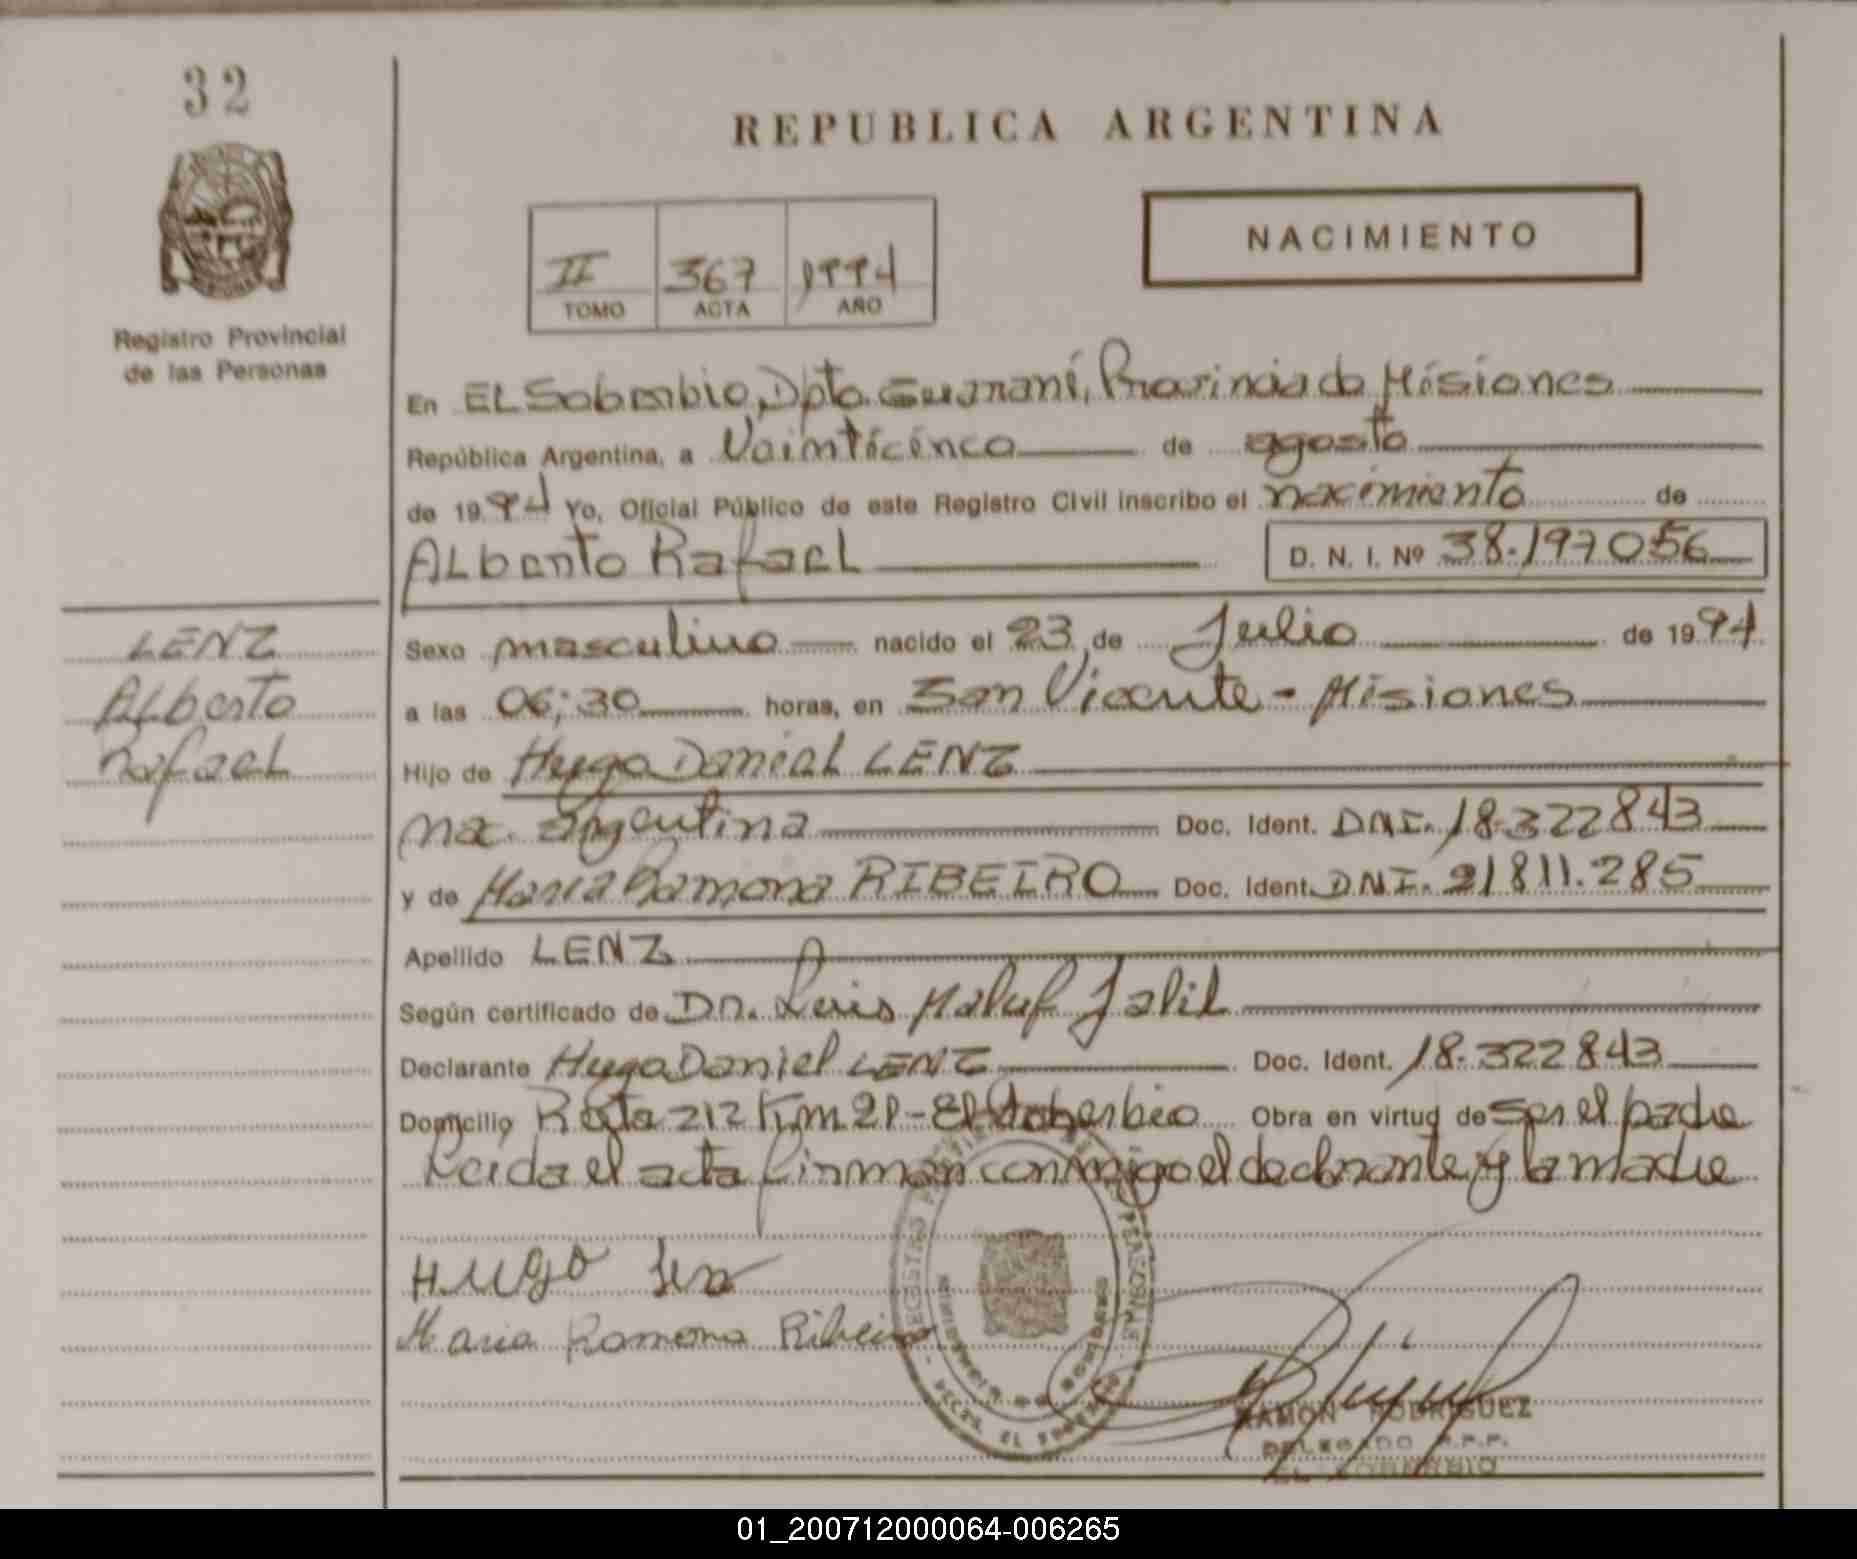 32
REPUBLICA ARGENTINA
NACIMIENTO
II 367 1994
TOMO ACTA AÑO
Registro Provincial
de las Personas
En EL Soberbio, Dpto. Guaraní, Provincia de Misiones
República Argentina, a Veinticinco de agosto
de 1994 Yo, Oficial Público de este Registro Civil inscribo el nacimiento de
Alberto Rafael D. N. I. Nº 38.197056
LENZ
Alberto
Rafael
Sexo masculino nacido el 23 de Julio de 1994
a las 06:30 horas, en San Vicente - Misiones
Hijo de Hugo Daniel LENZ
Na. argentina Doc. Ident. DNI. 18.322843
y de Maria Ramona RIBEIRO Doc. Ident. DNI. 21811.285
Apellido LENZ
Según certificado de Dr. Luis Maluf Jalil
Declarante Hugo Daniel LENZ Doc. Ident. 18.322843
Domicilio Ruta 212 Km 21 - El Soberbio Obra en virtud de ser el padre
Leida el acta firman conmigo el declarante y la madre
HUGO Lenz
Maria Ramona Ribeiro
RAMON RODRIGUEZ
DELEGADO R.P.P.
EL SOBERBIO
01_200712000064-006265